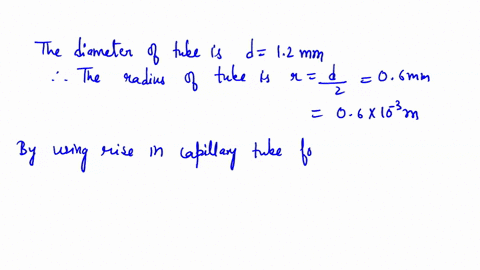 The diameter of tube is d = 1.2 mm
∴ The radius of tube is r = d/2 = 0.6mm
= 0.6 × 10⁻³ m
By using rise in capillary tube fo